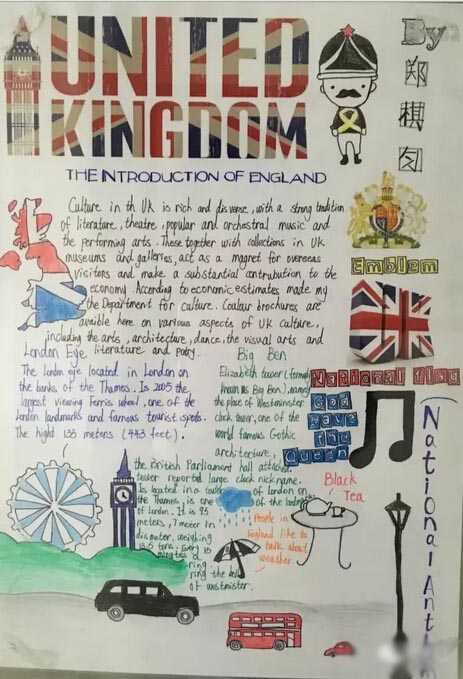 UNITED
KINGDOM
By
郑
棋
THE INTRODUCTION OF ENGLAND
Culture in th UK is rich and disverse, with a strong tradition
of literature, theatre, popular and orchestral music and
the performing arts. These together with collections in UK
museums and galleries, act as a magret for overseas
visitors and make a substantial contrubution to the
economy. According to economic estimates made my
the Department for culture. Coulour brochures are
avaible here on various aspects of UK culture,
including the arts, architecture, dance, the visual arts and
literature and poetry.
Emblem
National flag
God
Save
the
Queen
National
London Eye
The london eye located in London on
the banks of the Thames. Is 2005 the
largest viewing Ferris wheel, one of the
london landmarks and famous tourist spots.
The hight 135 meters (443 feet).
Big Ben
Elizabeth tower (formerly
known as Big Ben), named
the place of Westminster
clock tower, one of the
world famous Gothic
architecture,
the British Parliament hall attached
tower reported large clock nickname.
Is located in a
of london on
the Thames, is one
of the
of london. It is 95
meters, 7 meter in
diameter, weighing
13.5 tons. Every 15
minutes
ring.
ring the
of westmister.
People in
England like to
talk about
weather
Black
Tea